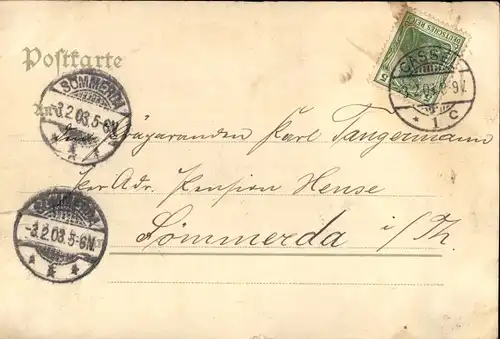 Postkarte
DEUTSCHES REICH
5
CASSEL
3.2.03. 8-9V.
* 1 C
SÖMMERDA
-3.2.03.5-6N.
* * *
An d
Präparanden Karl Tangermann
per Adr. Pension Hense
Sömmerda i/Th.
SÖMMERDA
-3.2.03.5-6N.
* * *